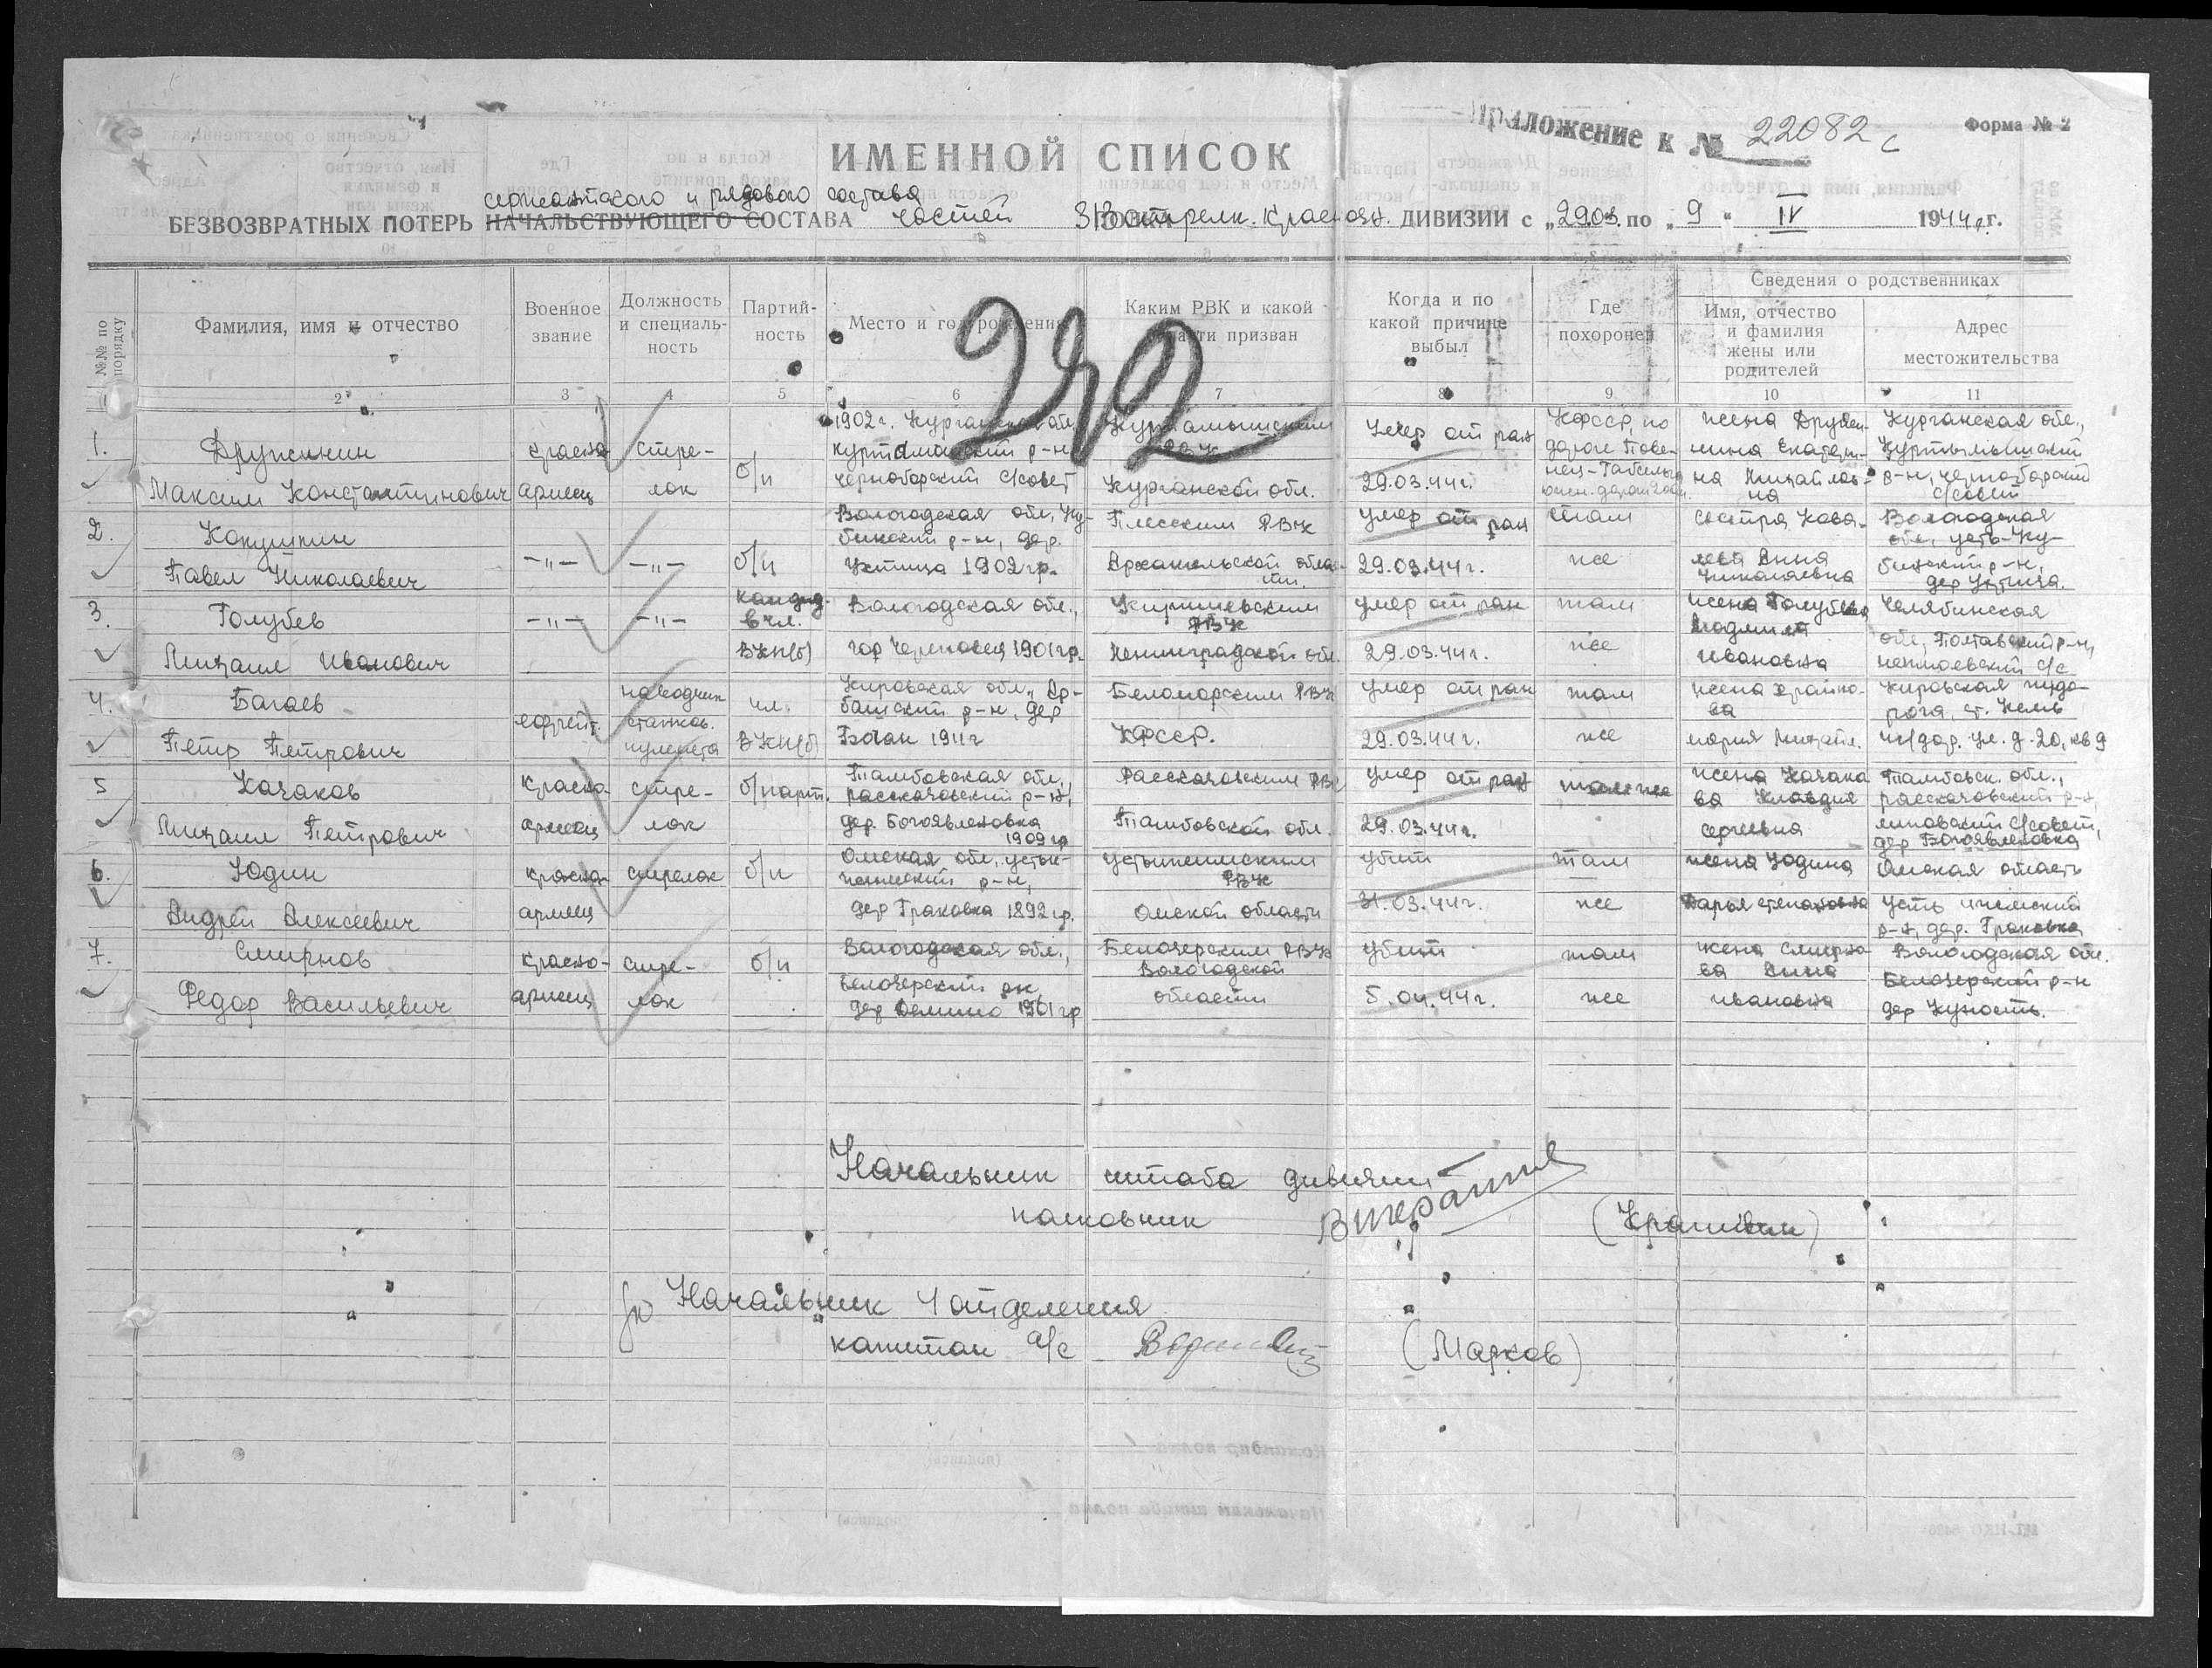 Приложение к № 22082с
Форма № 2
ИМЕННОЙ СПИСОК
сержантского и рядового состава
БЕЗВОЗВРАТНЫХ ПОТЕРЬ НАЧАЛЬСТВУЮЩЕГО СОСТАВА частей 313 стрелк. Краснозн. ДИВИЗИИ с „29.03. по „9“ IV 1944 г.
№№ по порядку
Фамилия, имя и отчество
Военное звание
Должность и специаль-ность
Партий-ность
Место и год рождения
Каким РВК и какой области призван
Когда и по какой причине выбыл
Где похоронен
Сведения о родственниках
Имя, отчество и фамилия жены или родителей
Адрес местожительства
2 3 4 5 6 7 8 9 10 11
242
1. Дружинин Максим Константинович
красно-армеец
стре-лок
б/п
1902 г. Курганская обл. Куртамышский р-н черноборский с/совет
Куртамышским РВК Курганской обл.
Умер от ран 29.03.44 г.
КФССР, по дороге Пове-нец-Габсельга
жена Дружи-нина Екатери-на Михайлов-на
Курганская обл., Куртамышский р-н, черноборский с/совет
2. Кокушкин Павел Николаевич
-„-
-„-
б/п
Вологодская обл., Ку-бинский р-н, дер. Устица 1902 гр.
Плесским РВК Архангельской облас-ти.
умер от ран 29.03.44 г.
там же
сестра Кова-лева Анна Николаевна
Вологодская обл., усть-Ку-бинский р-н, дер Устица.
3. Голубев Михаил Иванович
-„-
-„-
кандид. в чл. ВКП(б)
Вологодская обл., гор Череповец 1901 гр.
РВК Ленинградской обл.
умер от ран 29.03.44 г.
там же
жена Голубева Людмила Ивановна
Челябинская обл., Полтавский р-н, с/с
4. Багаев Петр Петрович
ефрейт.
наводчик станков. пулемета
чл. ВКП(б)
Кировская обл., Ар-бажский р-н, дер Боган 1911 г
Беломорским РВК КФССР.
умер от ран 29.03.44 г.
там же
жена мария Михайл.
Кировская ж/до-рога, ст. Кемь ж/дор. ул. д. 20, кв 9
5 Качаков Михаил Петрович
Красно-армеец
стре-лок
б/парт.
Тамбовская обл., рассказовский р-н, дер. Богоявленовка 1909 гр
Рассказовским РВК Тамбовской обл.
умер от ран 29.03.44 г.
там же
жена Качако ва Клавдия сергеевна
Тамбовск. обл., рассказовский р-н, липовский с/совет, дер Богоявленовка
6. Юдин Андрей Алексеевич
красно-армеец
стрелок
б/п
Омская обл., устьи-шимский р-н, дер Граковка 1892 гр.
устьишимским РВК Омской области
убит 31.03.44 г.
там же
жена Юдина Дарья степановна
Омская область усть ишимский р-н, дер. Граковка
7. Смирнов Федор Васильевич
красно-армеец
стре-лок
б/п
Вологодская обл., белозерский рн дер Демино гр
Белозерским РВК Вологодской области
убит 5.04.44 г.
там же
жена Смирно ва Анна ивановна
Вологодская обл. Белозерский р-н дер Куность.
Начальник штаба дивизии
полковник
Начальник 4 отделения
капитан а/с (Марков)